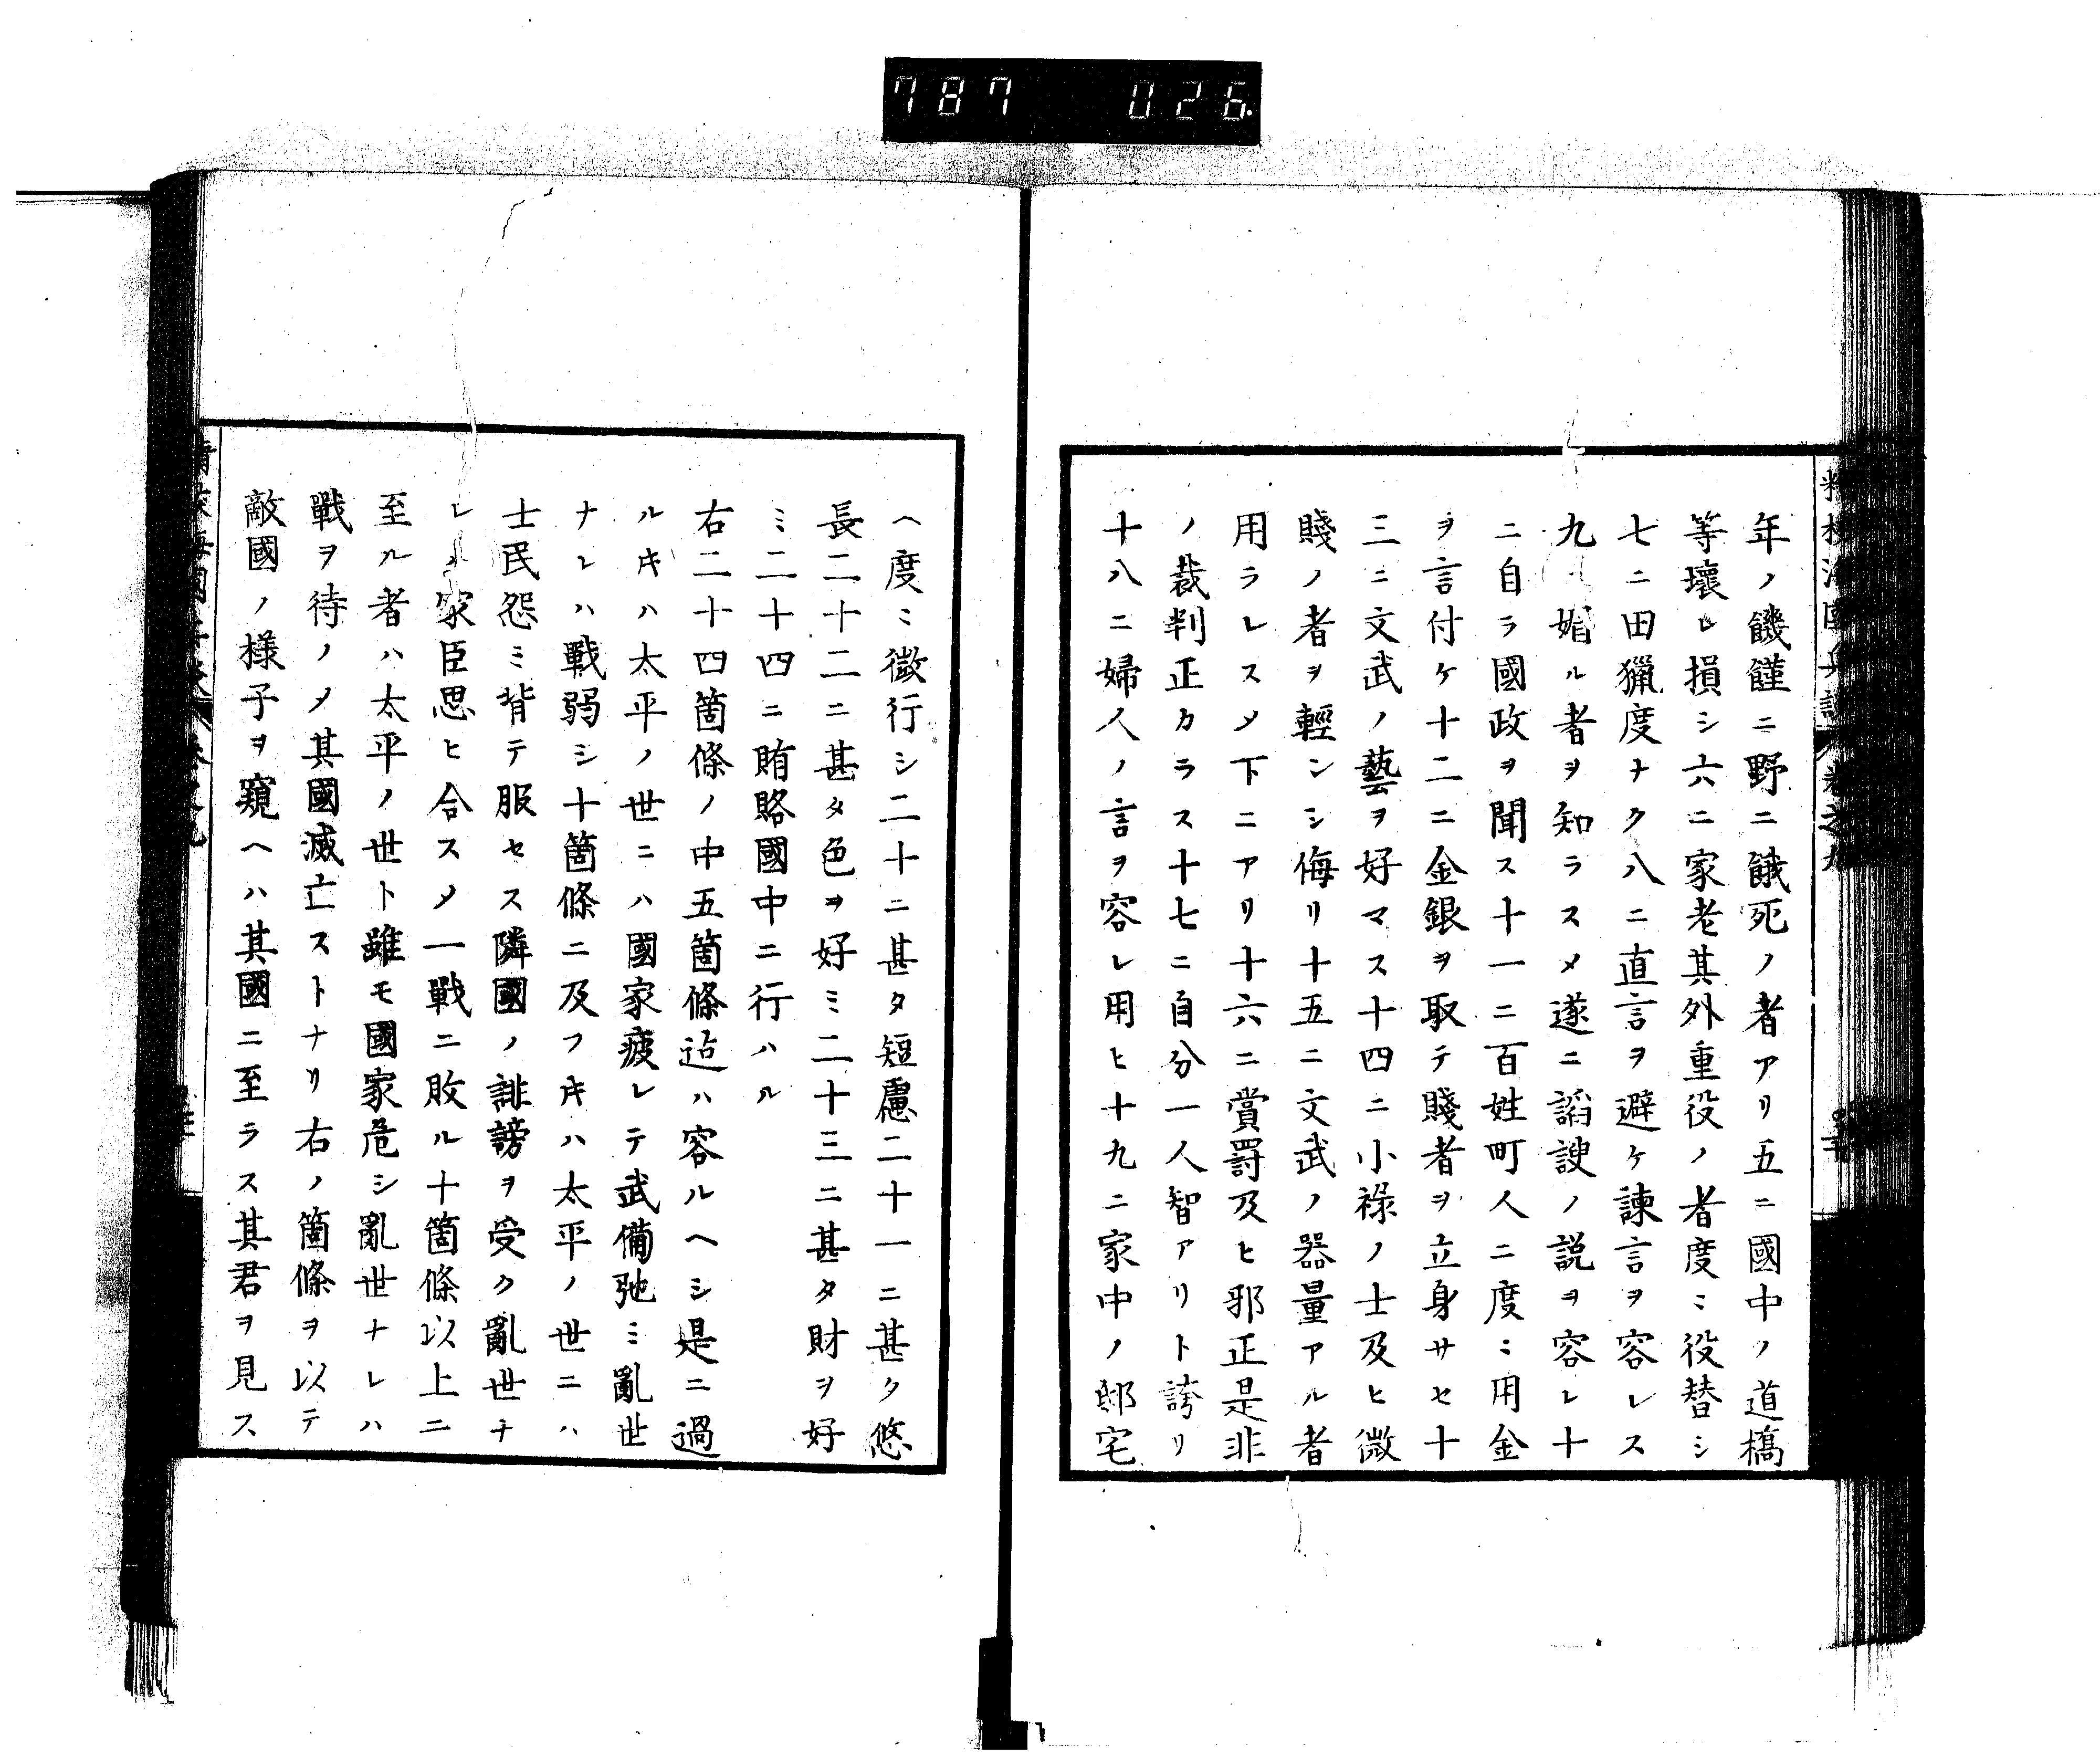 787 026
年ノ饑饉ニ野ニ餓死ノ者アリ五ニ國中ノ道橋
等壞レ損シ六ニ家老其外重役ノ者度〻役替シ
七ニ田獵度ナク八ニ直言ヲ避ケ諫言ヲ容レス
九ニ媚ル者ヲ知ラスメ遂ニ謟諛ノ説ヲ容レ十
ニ自ラ國政ヲ聞ス十一ニ百姓町人ニ度〻用金
ヲ言付ケ十二ニ金銀ヲ取テ賤者ヲ立身サセ十
三ニ文武ノ藝ヲ好マス十四ニ小祿ノ士及ヒ微
賤ノ者ヲ輕ンシ侮リ十五ニ文武ノ器量アル者
用ラレスメ下ニアリ十六ニ賞罸及ヒ邪正是非
ノ裁判正カラス十七ニ自分一人智アリト誇リ
十八ニ婦人ノ言ヲ容レ用ヒ十九ニ家中ノ邸宅
ヘ度〻微行シ二十ニ甚タ短慮二十一ニ甚タ悠
長二十二ニ甚タ色ヲ好ミ二十三ニ甚タ財ヲ好
ミ二十四ニ賄賂國中ニ行ハル
右二十四箇條ノ中五箇條迠ハ容ルヘシ是ニ過
ルキハ太平ノ世ニハ國家疲レテ武備弛ミ亂世
ナレハ戰弱シ十箇條ニ及フキハ太平ノ世ニハ
士民怨ミ背テ服セス隣國ノ誹謗ヲ受ク亂世ナ
レハ家臣思ヒ合スメ一戰ニ敗ル十箇條以上ニ
至ル者ハ太平ノ世ト雖モ國家危シ亂世ナレハ
戰ヲ待ノメ其國滅亡ストナリ右ノ箇條ヲ以テ
敵國ノ様子ヲ窺ヘハ其國ニ至ラス其君ヲ見ス